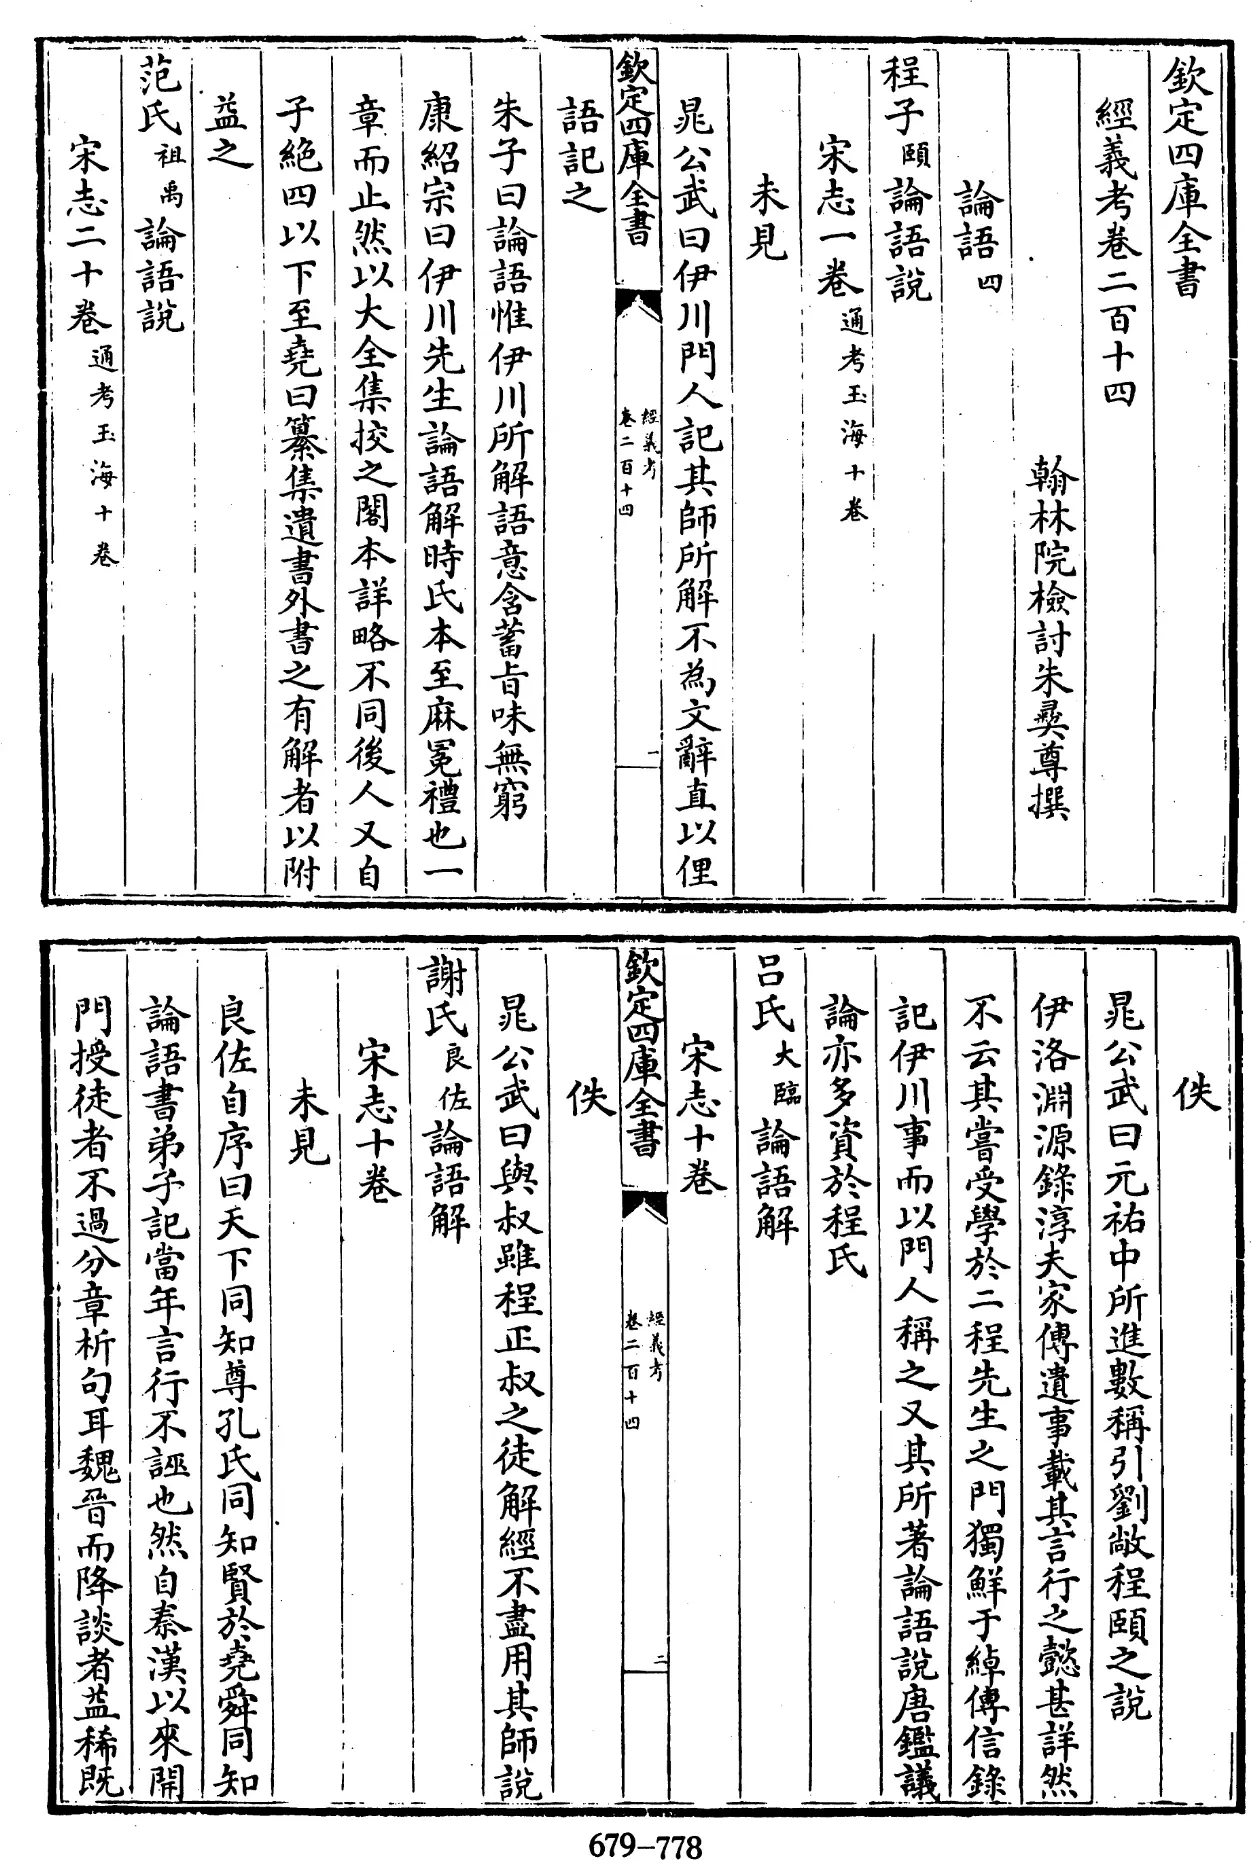 欽定四庫全書
經義考卷二百十四
翰林院檢討朱彝尊撰
論語四
程子頤論語說
宋志一卷通考玉海十卷
未見
晁公武曰伊川門人記其師所解不為文辭直以俚
欽定四庫全書
經義考
卷二百十四
一
語記之
朱子曰論語惟伊川所解語意含蓄旨味無窮
康紹宗曰伊川先生論語解時氏本至麻冕禮也一
章而止然以大全集挍之閣本詳略不同後人又自
子絶四以下至堯曰纂集遺書外書之有解者以附
益之
范氏祖禹論語說
宋志二十卷通考玉海十卷
佚
晁公武曰元祐中所進數稱引劉敞程頤之說
伊洛淵源錄淳夫家傳遺事載其言行之懿甚詳然
不云其嘗受學於二程先生之門獨鮮于綽傳信錄
記伊川事而以門人稱之又其所著論語說唐鑑議
論亦多資於程氏
呂氏大臨論語解
宋志十卷
欽定四庫全書
經義考
卷二百十四
二
佚
晁公武曰與叔雖程正叔之徒解經不盡用其師說
謝氏良佐論語解
宋志十卷
未見
良佐自序曰天下同知尊孔氏同知賢於堯舜同知
論語書弟子記當年言行不誣也然自秦漢以來開
門授徒者不過分章析句耳魏晉而降談者益稀既
679-778